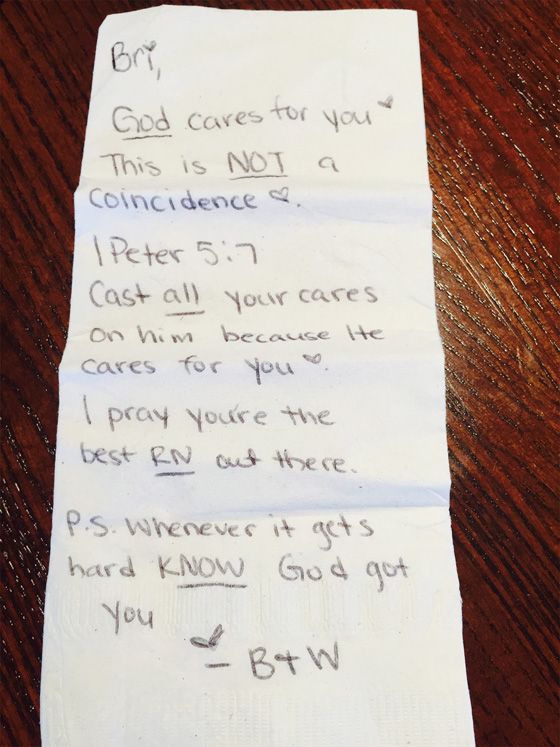 Bri,
God cares for you
This is NOT a
coincidence ♡.
1 Peter 5:7
Cast all your cares
on him because He
cares for you ♡.
I pray you're the
best RN out there.
P.S. Whenever it gets
hard KNOW God got
you
- B+W